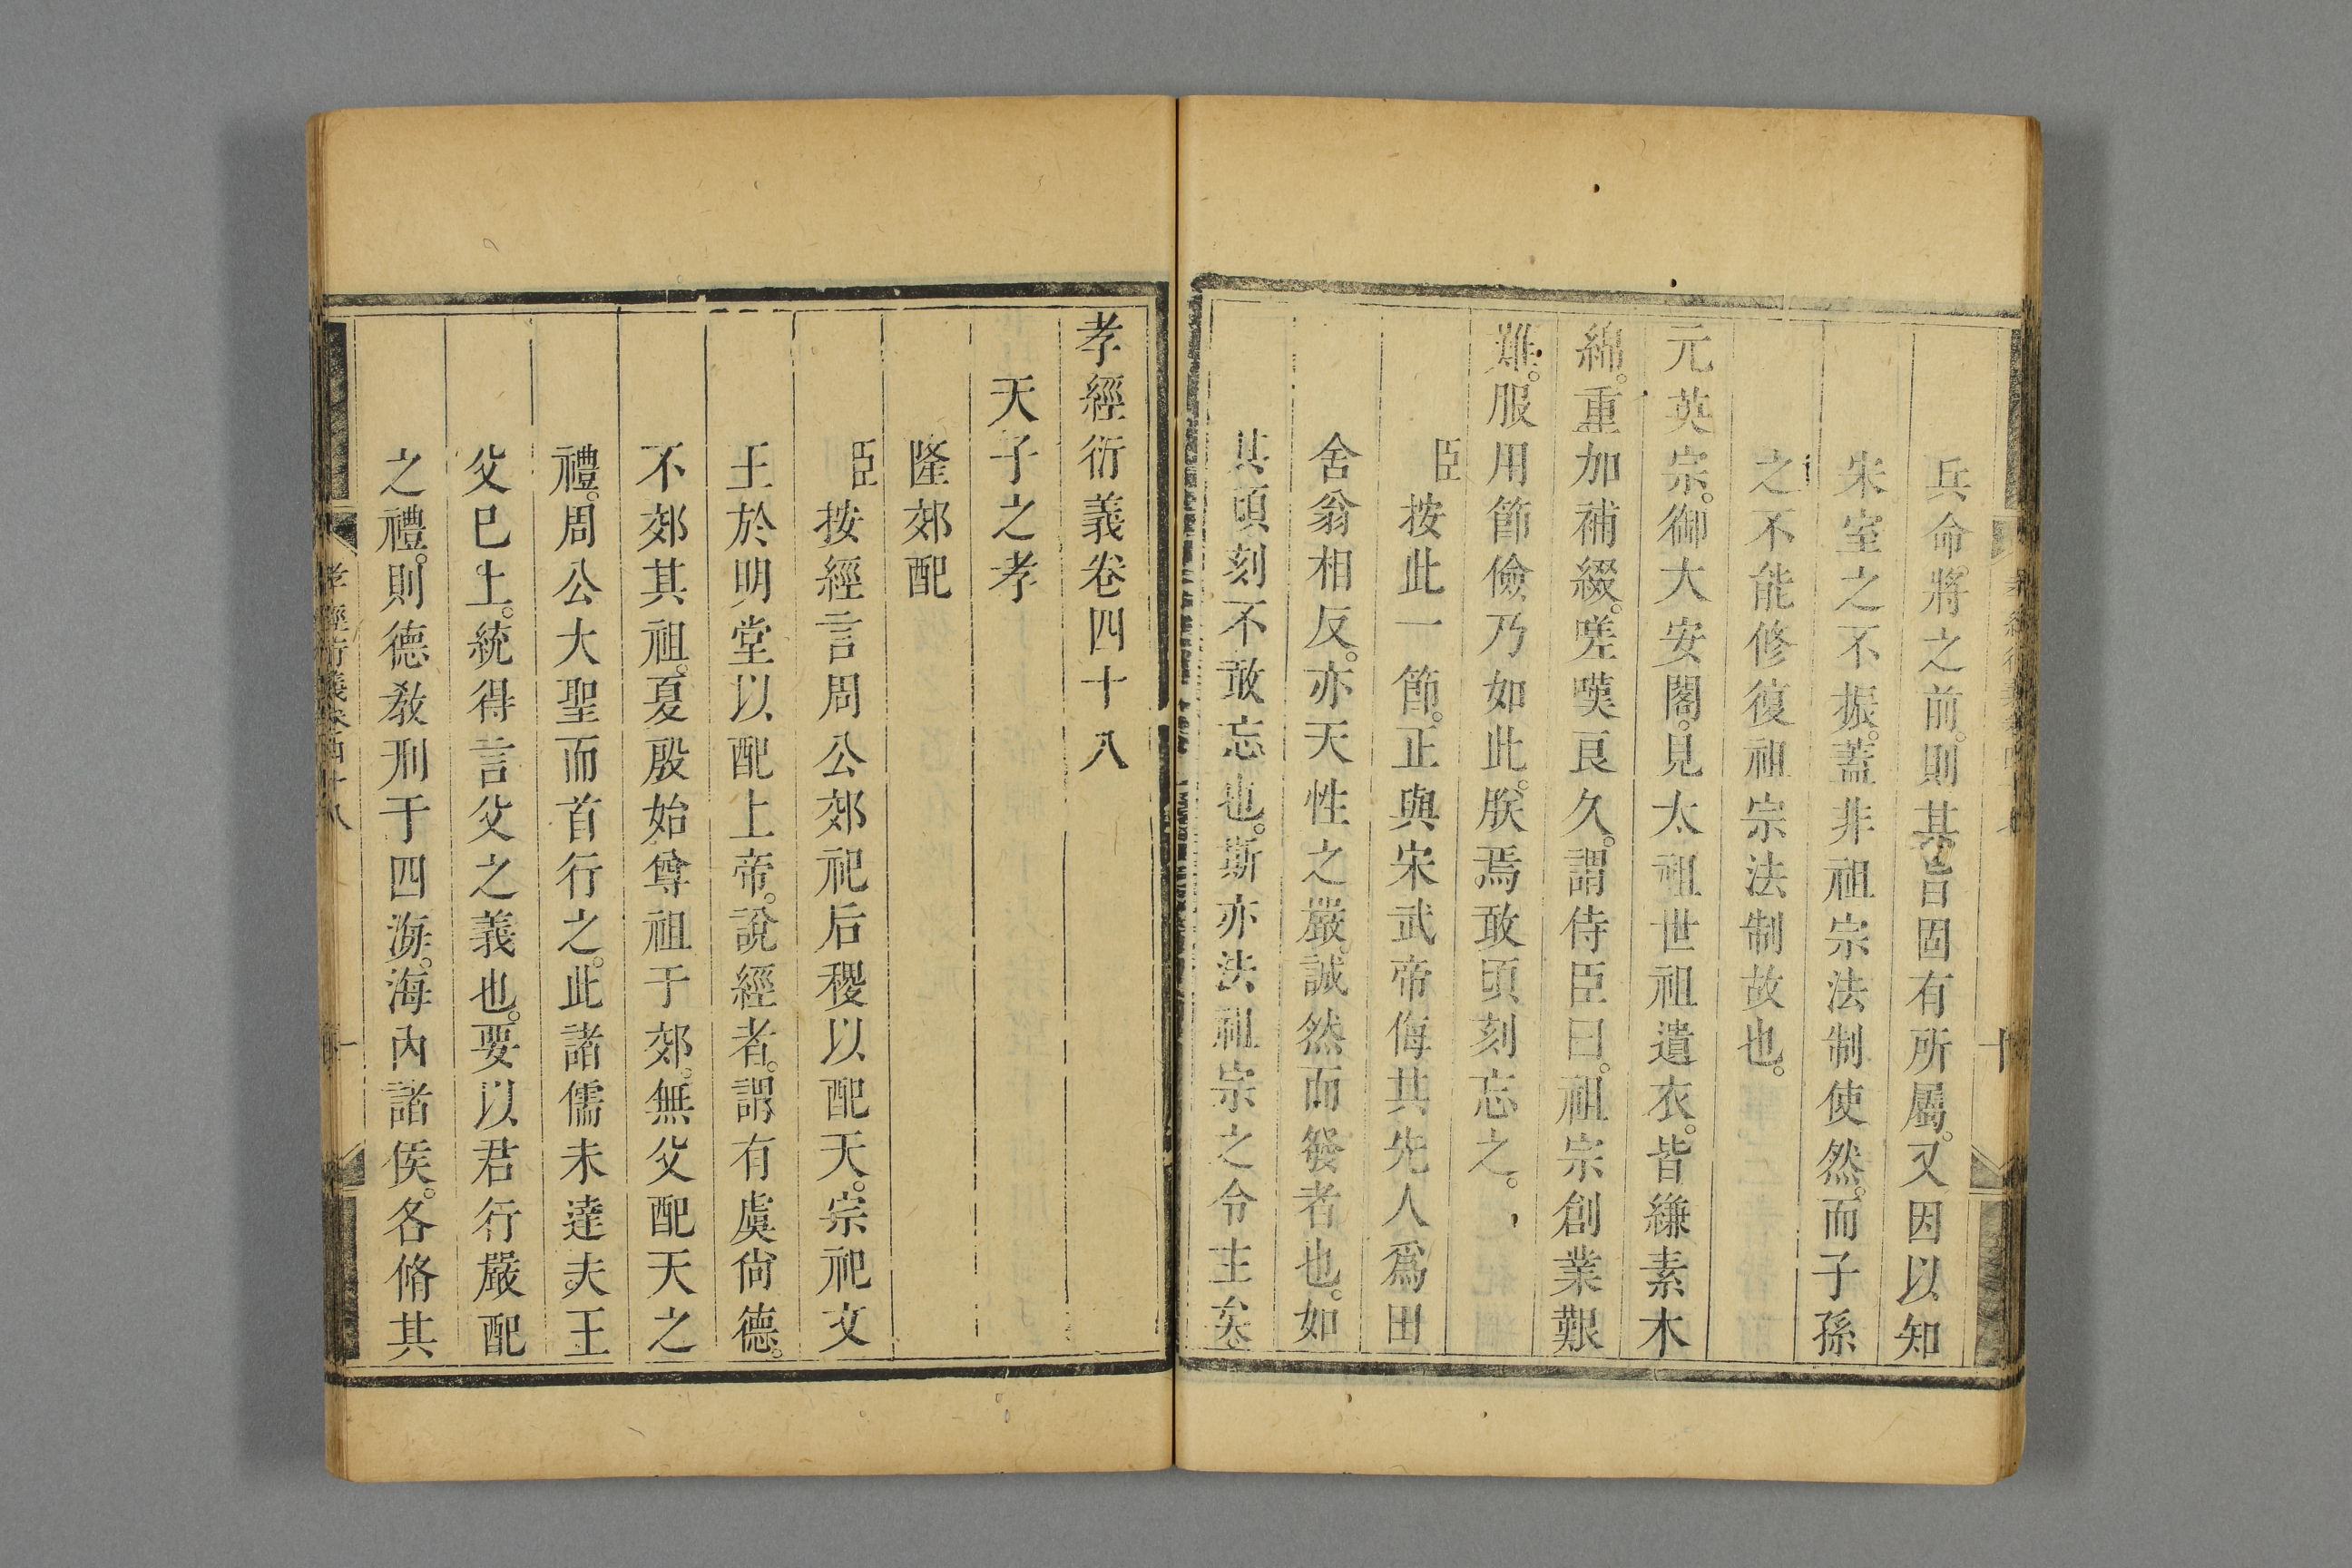 兵命。將之前。則其旨固有所屬。又因以知
宋室之不振。蓋非祖宗法制使然。而子孫
之不能修復祖宗法制故也。
元英宗。御大安閣。見太祖世祖遺衣。皆縑素木
綿。重加補綴。嗟嘆良久。謂侍臣曰。祖宗創業艱
難。服用節儉乃如此。朕焉敢頃刻忘之。
臣按此一節。正與宋武帝侮其先人為田
舍翁相反。亦天性之嚴。誠然而發者也。如
其頃刻不敢忘也。斯亦法祖宗之令主矣
孝經衍義卷四十八
天子之孝
隆郊配
臣按經言周公郊祀后稷以配天。宗祀文
王於明堂以配上帝。說經者。謂有虞尚德。
不郊其祖。夏殷始尊祖于郊。無父配天之
禮。周公大聖而首行之。此諸儒未達夫。王
父已上。統得言父之義也。要以君行嚴配
之禮。則德教刑于四海。海內諸侯。各脩其
孝經衍義卷四十八
一